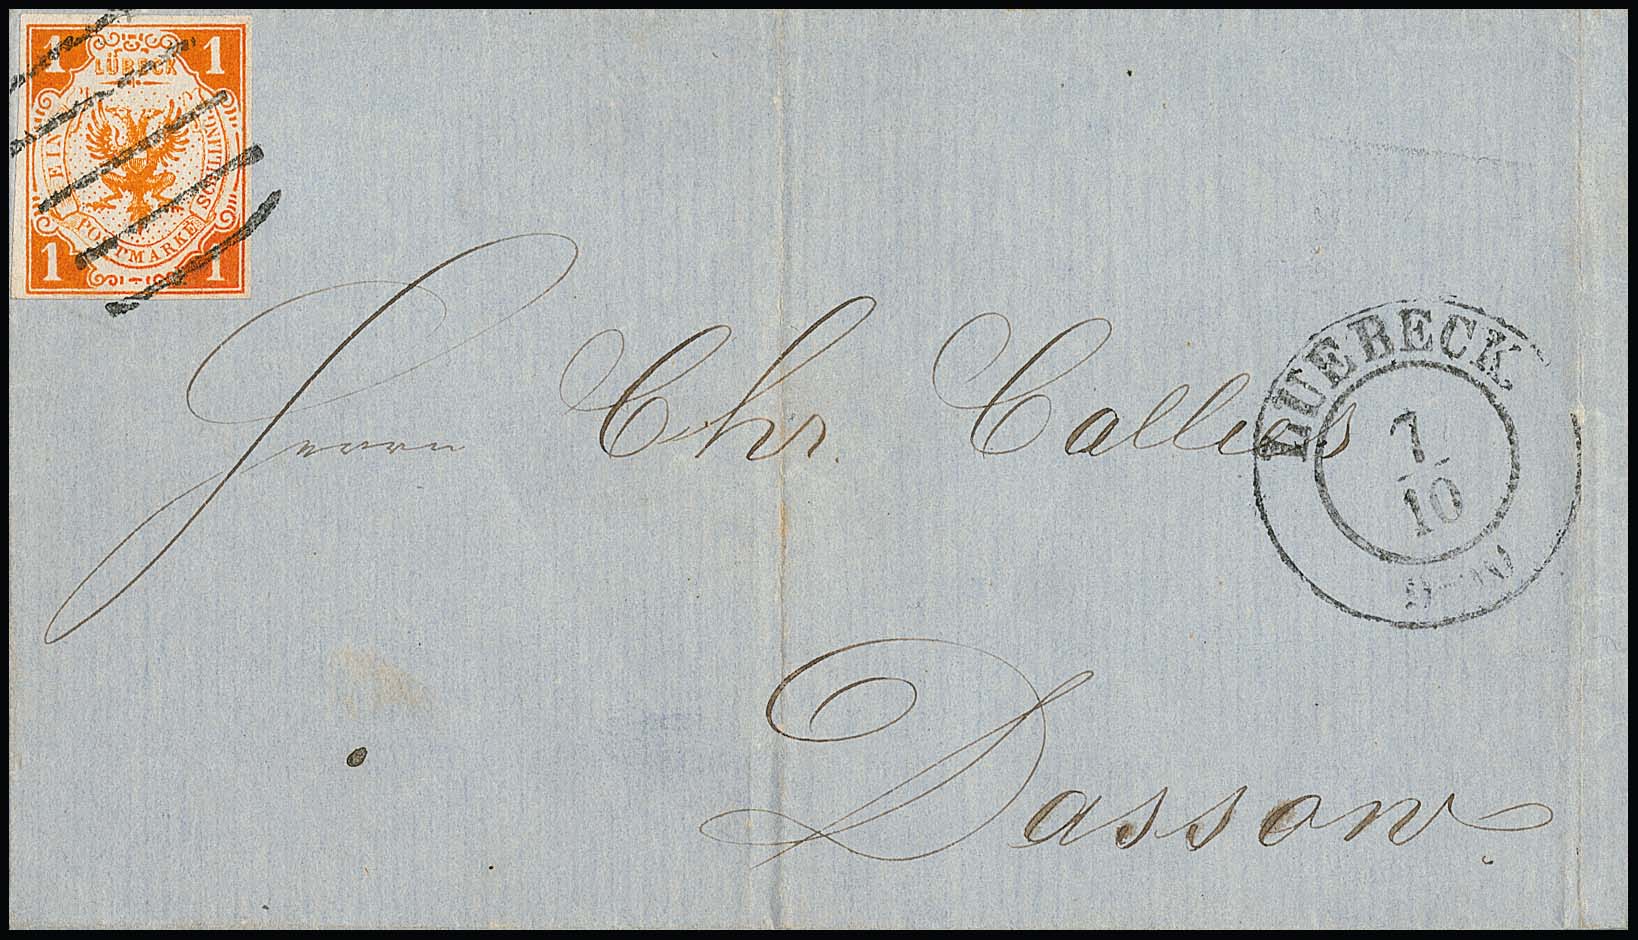 1 1
LÜBECK
EIN
SCHILLING
POSTMARKE
1 1
Herrn Chr. Callies
LUEBECK
7
10
9-10
Dassow.